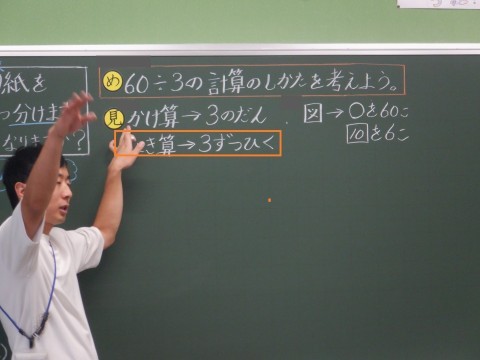 紙を
分けます
なりますか?
め 60÷3の計算のしかたを考えよう。
見 かけ算→3のだん
き算→3ずつひく
図→○を60こ
10を6こ